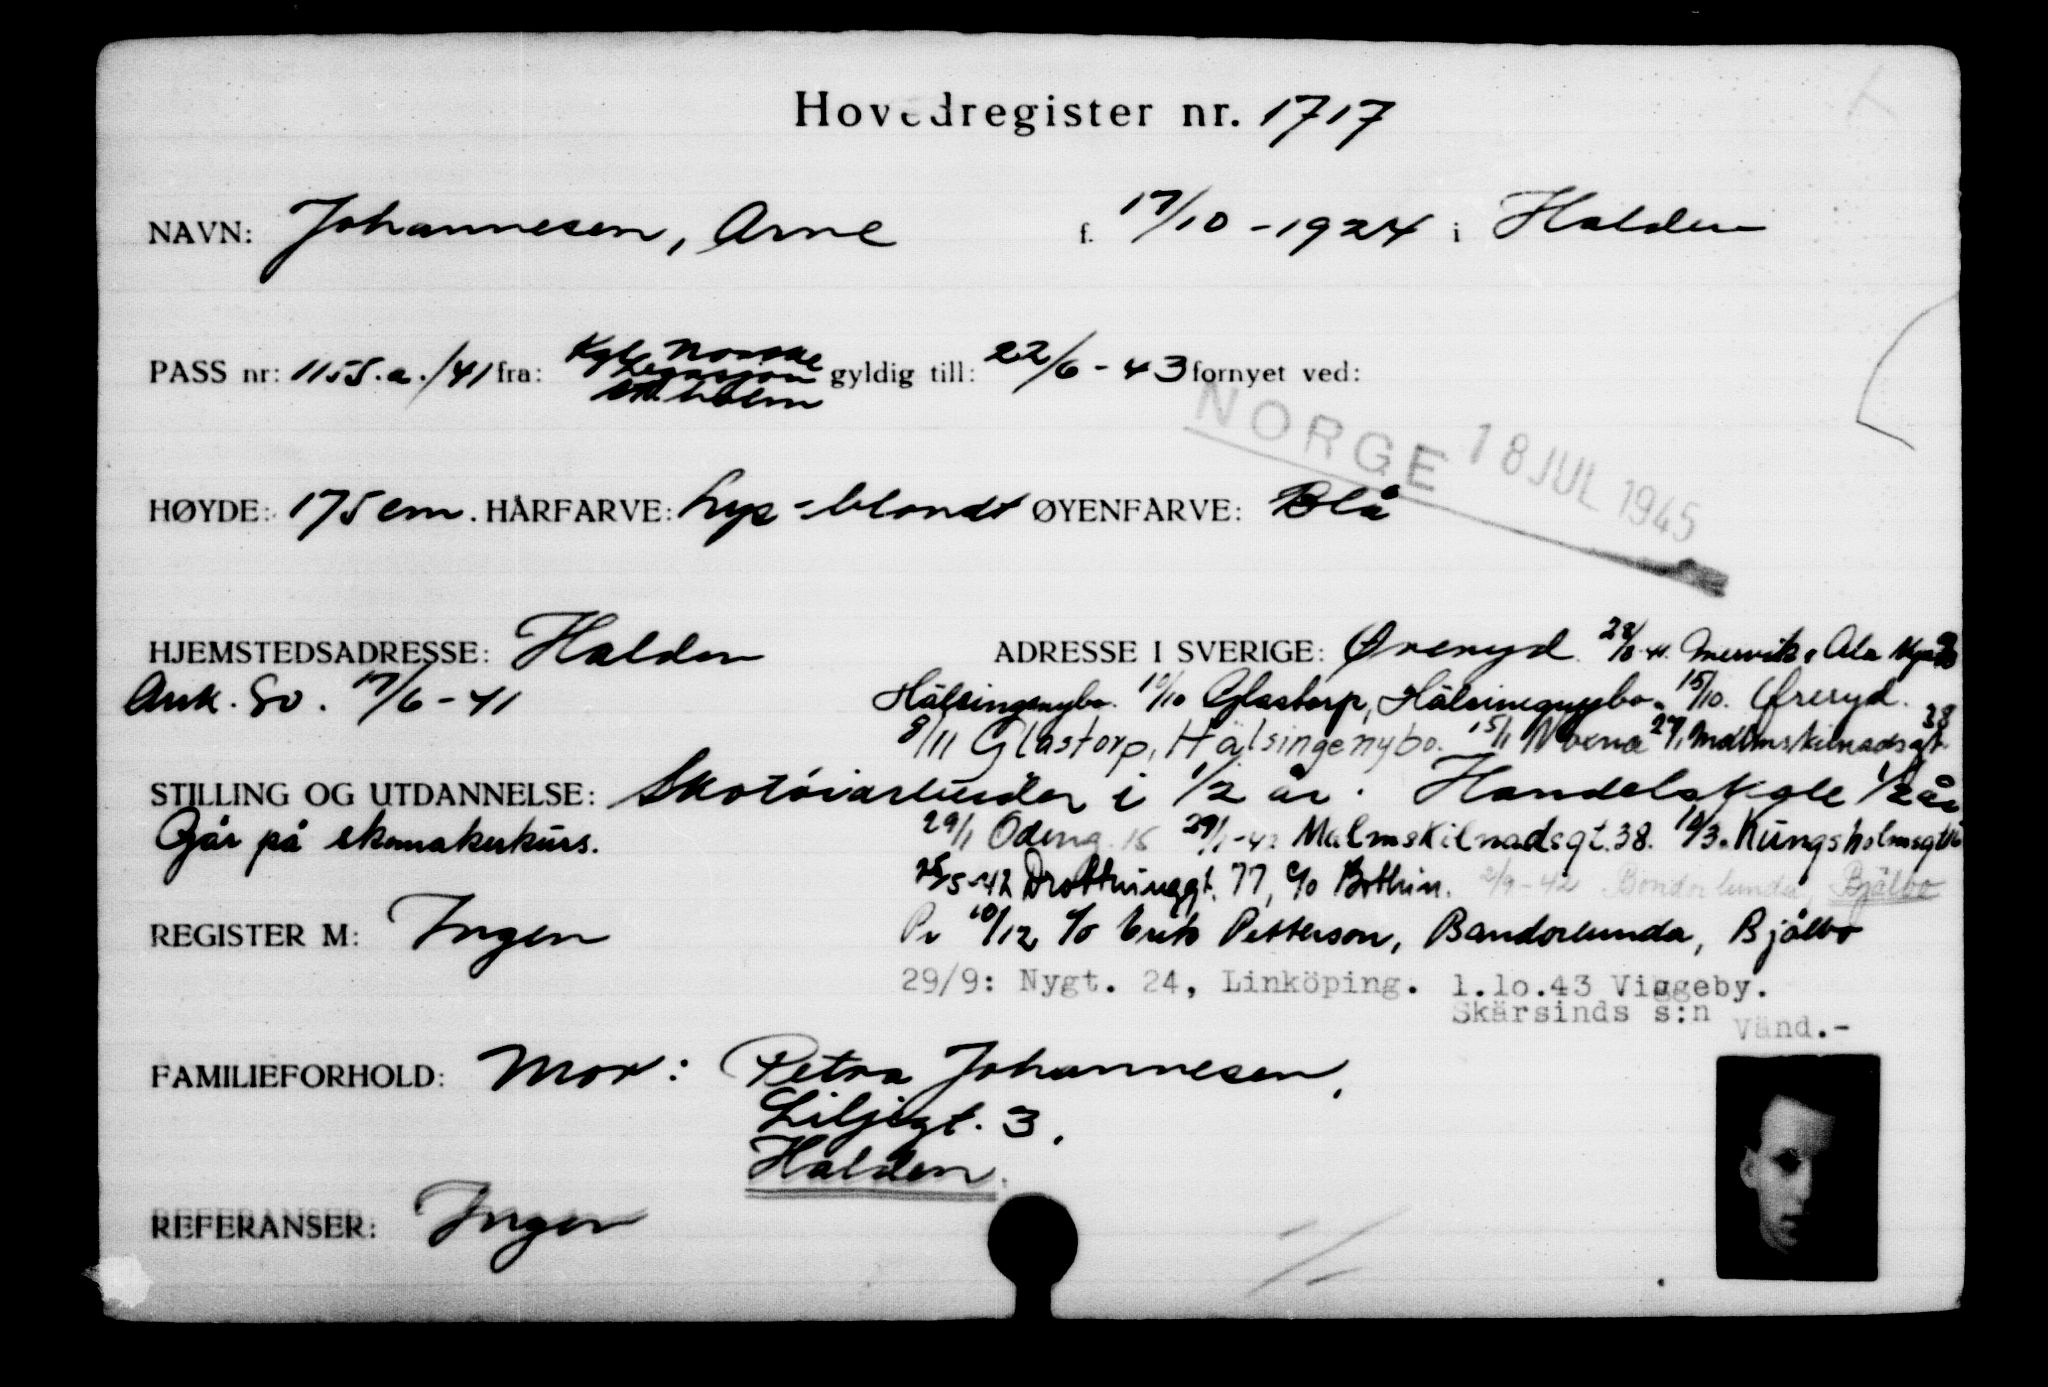 Hovedregister nr. 1717
NAVN: Johannesen, Arne f. 17/10 - 1924 i Halden
PASS nr: 1155.a./41 fra: Kgl. Norske Legasjon St.holm gyldig till: 22/6 - 43 fornyet ved:
NORGE 18 JUL 1945
HØYDE: 175 cm. HÅRFARVE: Lys-blondt ØYENFARVE: Blå
HJEMSTEDSADRESSE: Halden ADRESSE I SVERIGE: Øreryd 28/8-41.
Ank. Sv. 17/6 - 41 Hälsingenybo. 10/10 Glastorp, Hälsingenybo. 15/10. Øreryd.
8/11 Glastorp, Hälsingenybo. 15/1 27/1 Malmskilnadsgt. 38
STILLING OG UTDANNELSE: Skotöiarbeider i 1/2 år. Handelskole 1/2 år
Går på skomakerkurs. 29/1 Odeng. 15 29/1-42 Malmskilnadsgt. 38. 10/3. Kungsholmsgt
25/5-42 Drottninggt. 77, c/o Bothin. 2/9-42 Bondorlunda, Bjälbo
REGISTER M: Ingen Pr 10/12 c/o Erik Petterson, Bandorlunda, Bjålbo
29/9: Nygt. 24, Linköping. 1.10.43 Viggeby.
Skärsinds s:n Vänd.-
FAMILIEFORHOLD: Mor: Petra Johannesen,
Liljegt. 3,
Halden.
REFERANSER: Ingen